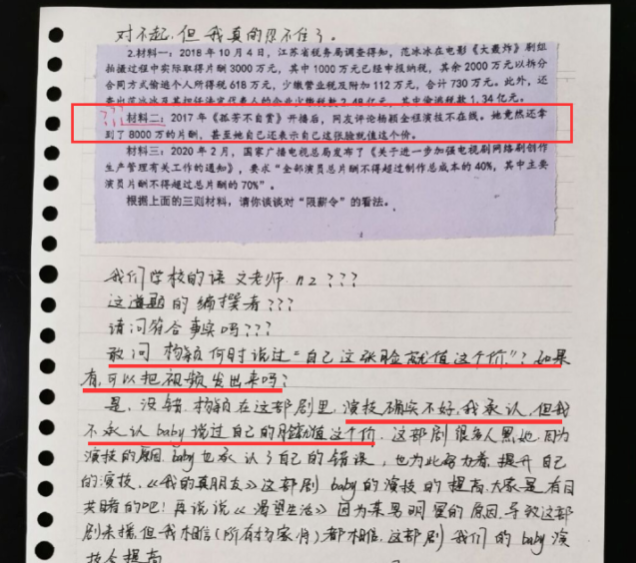 对不起,但我真的忍不住了。
2.材料一：2018年10月4日，江苏省税务局调查得知，范冰冰在电影《大轰炸》剧组
拍摄过程中实际取得片酬3000万元，其中1000万元已经申报纳税，其余2000万元以拆分
合同方式偷逃个人所得税618万元，少缴营业税及附加112万元，合计730万元。此外，还
查出范冰冰及其担任法定代表人的企业少缴税款2.48亿元，其中偷逃税款1.34亿元。
???
材料二：2017年《孤芳不自赏》开播后，网友评论杨颖全程演技不在线。她竟然还拿
到了8000万的片酬，甚至她自己还表示自己这张脸就值这个价。
材料三：2020年2月，国家广播电视总局发布了《关于进一步加强电视剧网络剧创作
生产管理有关工作的通知》，要求“全部演员总片酬不得超过制作总成本的40%，其中主要
演员片酬不得超过总片酬的70%”。
根据上面的三则材料，请你谈谈对“限薪令”的看法。
我们学校的语文老师 n2???
这道题的编撰者???
请问符合事实吗???
敢问 杨颖何时说过“自己这张脸就值这个价”?如果
有,可以把视频发出来吗?
是,没错,杨颖在这部剧里,演技确实不好,我承认,但我
不承认baby说过自己的脸就值这个价,这部剧很多人黑她,因为
演技的原因,baby也承认了自己的错误,也为此努力着,提升自己
的演技,《我的真朋友》这部剧baby的演技的提高,大家是有目
共睹的吧!再说说《渴望生活》因为某男明星的原因,导致这部
剧未播,但我相信(所有杨家骨)都相信,这部剧我们的baby演
技会提高